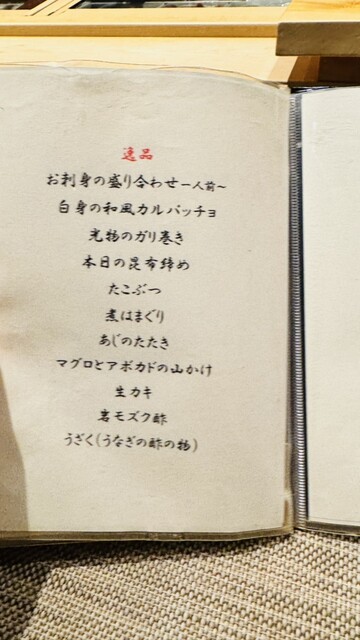 逸品
お刺身の盛り合わせ一人前~
白身の和風カルパッチョ
光物のガリ巻き
本日の昆布締め
たこぶつ
煮はまぐり
あじのたたき
マグロとアボカドの山かけ
生カキ
岩モズク酢
うざく(うなぎの酢の物)